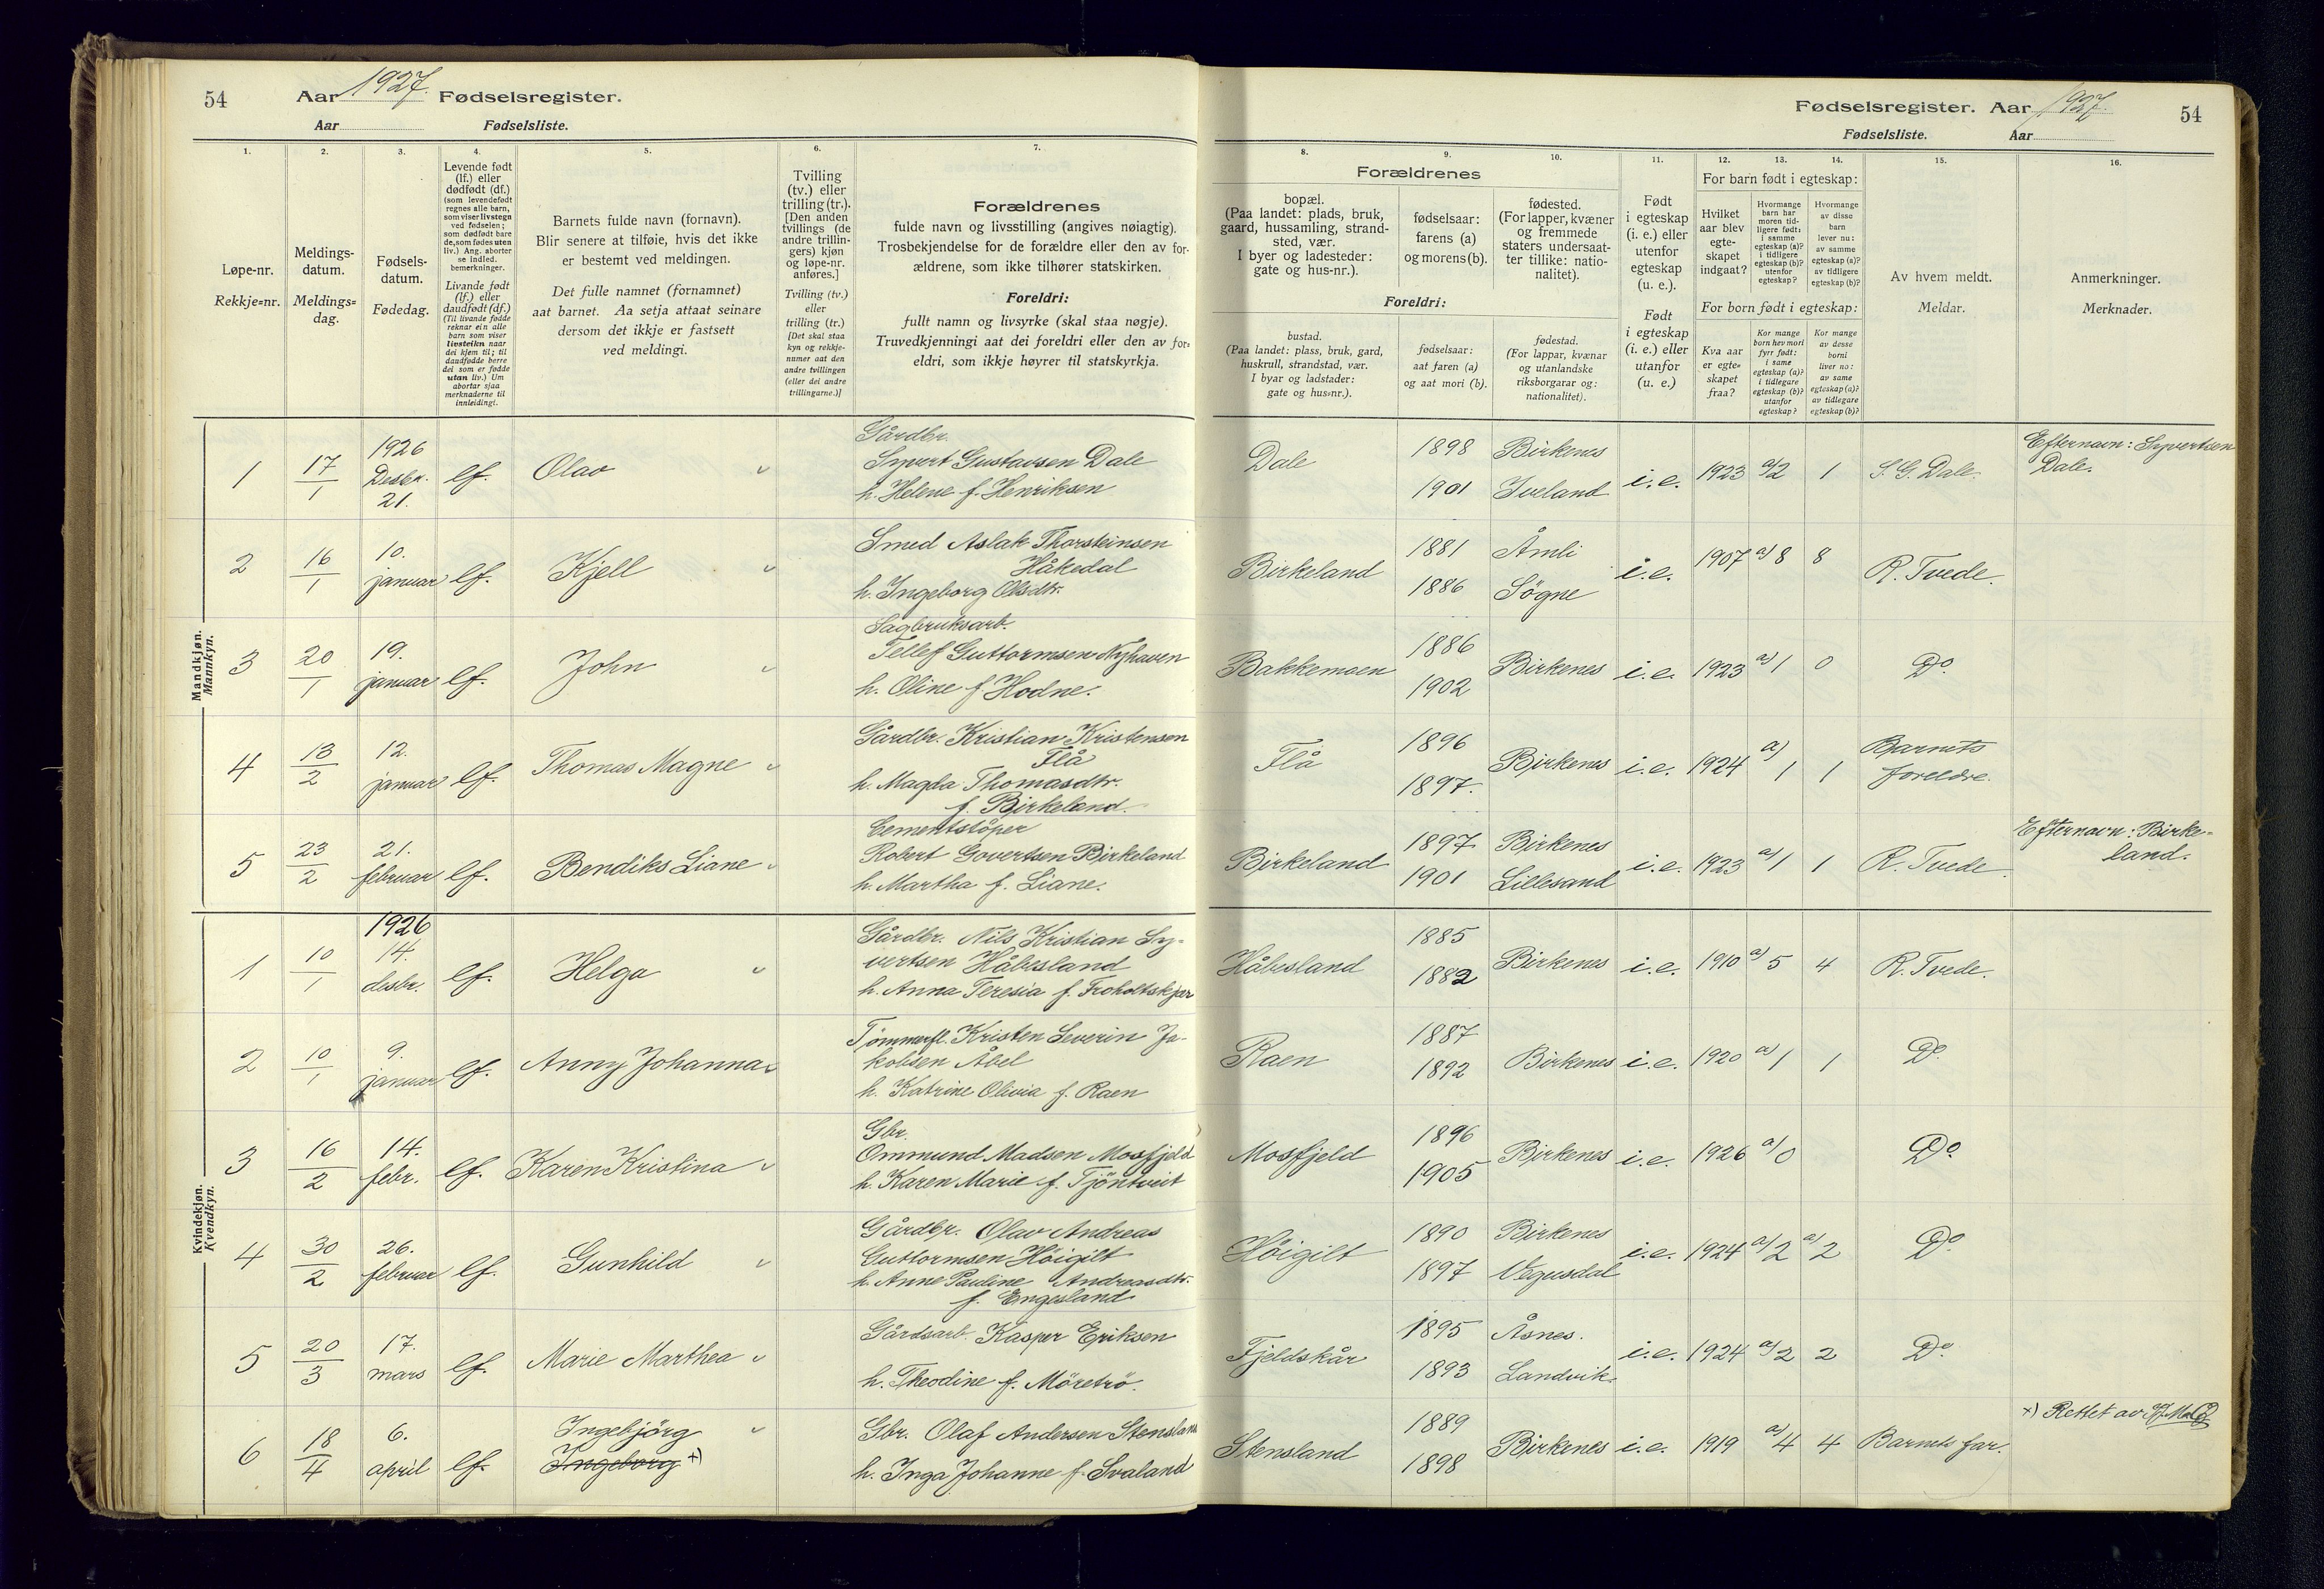 54 Aar 1927. Fødselsregister.
Aar Fødselsliste.
1. 2. 3. 4. 5. 6. 7.
Løpe-nr.
Rekkje-nr.
Meldings-
datum.
Meldings-
dag.
Fødsels-
datum.
Fødedag.
Levende født
(lf.) eller
dødfødt (df.)
(som levendefødt
regnes alle barn,
som viser livstegn
ved fødselen;
som dødfødt bare
de, som fødes uten
liv.) Ang. aborter
se indled.
bemerkninger.
Livande født
(lf.) eller
daudfødt (df.)
(Til livande fødde
reknar ein alle
born som viser
livsteikn naar
dei kjem til; til
daudfødde berre
dei som er fødde
utan liv.) Um
abortar sjaa
merknaderne til
innleidingi.
Barnets fulde navn (fornavn).
Blir senere at tilføie, hvis det ikke
er bestemt ved meldingen.
Det fulle namnet (fornamnet)
aat barnet. Aa setja attaat seinare
dersom det ikkje er fastsett
ved meldingi.
Tvilling
(tv.) eller
trilling (tr.).
[Den anden
tvillings (de
andre trillin-
gers) kjøn
og løpe-nr.
anføres.]
Tvilling (tv.)
eller
trilling (tr.)
[Det skal staa
kyn og rekkje-
numer aat den
andre tvillingen
(eller dei andre
trillingarne.)]
Forældrenes
fulde navn og livsstilling (angives nøiagtig).
Trosbekjendelse for de forældre eller den av for-
ældrene, som ikke tilhører statskirken.
Foreldri:
fullt namn og livsyrke (skal staa nøgje).
Truvedkjenningi aat dei foreldri eller den av for-
eldri, som ikkje høyrer til statskyrkja.
Mandkjøn.
Mannkyn.
1 17/1 1926 Desbr. 21. lf. Olav
Gårdbr.
Syvert Gustavsen Dale
h. Helene f. Henriksen
2 16/1 10. januar lf. Kjell
Smed Aslak Thorsteinsen
Håkedal
h. Ingeborg Olsdtr.
3 20/1 19. januar lf. John
Sagbruksarb.
Tellef Guttormsen Nyhaven
h. Oline f Hodne.
4 13/2 12. januar lf. Thomas Magne
Gårdbr. Kristian Kristensen
Flå
h. Magda Thomasdtr.
f. Birkeland.
5 23/2 21. februar lf. Bendiks Liane
Cementstöper
Robert Govertsen Birkeland
h. Martha f. Liane.
Kvindekjøn.
Kvendkyn.
1 10/1 1926 14. desbr. lf. Helga
Gårdbr. Nils Kristian Sy-
vertsen Håbesland
h. Anna Teresia f. Froholtskjær
2 10/1 9. januar lf. Anny Johanna
Tömmerfl. Kristen Severin Ja-
kobsen Åbel
h. Katrine Olivia f. Raen
3 16/2 14. febr. lf. Karen Kristina
Gbr.
Ommund Madsen Mosfjeld
h. Karen Marie f. Tjöntveit
4 30/2 26. februar lf. Gunhild
Gårdbr. Olav Andreas
Guttormsen Höigilt
h. Anne Pauline Andreasdtr.
f. Engesland
5 20/3 17. mars lf. Marie Marthea
Gårdsarb. Kasper Eriksen
h. Theodine f. Möretrö.
6 18/4 6. april lf. Ingebjörg
Ingeborg x)
Gbr. Olaf Andersen Stensland
h. Inga Johanne f. Svaland
Fødselsregister. Aar 1927. 54
Fødselsliste. Aar
8. 9. 10. 11. 12. 13. 14. 15. 16.
Forældrenes
bopæl.
(Paa landet: plads, bruk,
gaard, hussamling, strand-
sted, vær.
I byer og ladesteder:
gate og hus-nr.).
fødselsaar:
farens (a)
og morens (b).
fødested.
(For lapper, kvæner
og fremmede
staters undersaat-
ter tillike: natio-
nalitet).
Foreldri:
bustad.
(Paa landet: plass, bruk, gard,
huskrull, strandstad, vær.
I byar og ladstader:
gate og hus-nr.).
fødselsaar:
aat faren (a)
og aat mori (b).
fødestad.
(For lappar, kvænar
og utanlandske
riksborgarar og:
nationalitet).
Født
i egteskap
(i. e.) eller
utenfor
egteskap
(u. e.).
Født
i egteskap
(i. e.) eller
utanfor
(u. e.)
For barn født i egteskap:
Hvilket
aar blev
egte-
skapet
indgaat?
Hvormange
barn har
moren tid-
ligere født:
i samme
egteskap (a)?
i tidligere
egteskap (b)?
utenfor
egteskap?
Hvormange
av disse
barn
lever nu:
av samme
egteskap (a)?
av tidligere
egteskap (b)?
For born født i egteskap:
Kva aar
er egte-
skapet
fraa?
Kor mange
born hev mori
fyrr født:
i same
egteskap (a)?
i tidlegare
egteskap (b)?
utanfor
egteskap?
Kor mange
av desse
borni
liver no:
av same
egteskap (a)?
av tidlegare
egteskap (b)?
Av hvem meldt.
Meldar.
Anmerkninger.
Merknader.
Dale 1898 Birkenes
1901 Iveland i.e. 1923 a/2 1 S. G. Dale. Efternavn: Syvertsen
Dale.
Birkeland 1881 Åmli
1886 Sögne i.e. 1907 a) 8 8 R. Tvede.
Bakkemoen 1886
1902 Birkenes i.e. 1923 a) 1 0 Do.
Flå 1896
1897. Birkenes i.e. 1924 a) 1 1 Barnets
foreldre.
Birkeland 1897 Birkenes
1901 Lillesand i.e. 1923 a) 1 1 R. Tvede. Efternavn: Birke-
land.
Håbesland 1885
1882 Birkenes i.e. 1910 a) 5 4 R. Tvede.
Raen 1887
1892 Birkenes i.e. 1920 a) 1 1 Do.
Mosfjeld 1896
1905 Birkenes i.e. 1926 a) 0 Do.
Höigilt 1890 Birkenes
1897 Vegusdal i.e. 1924 a) 2 a) 2 Do.
Fjeldskår 1895 Åsnes.
1893 Landvik. i.e. 1924 a) 2 2 Do.
Stensland 1889
1898 Birkenes i.e. 1919 a) 4 4 Barnets far.
x) Rettet av